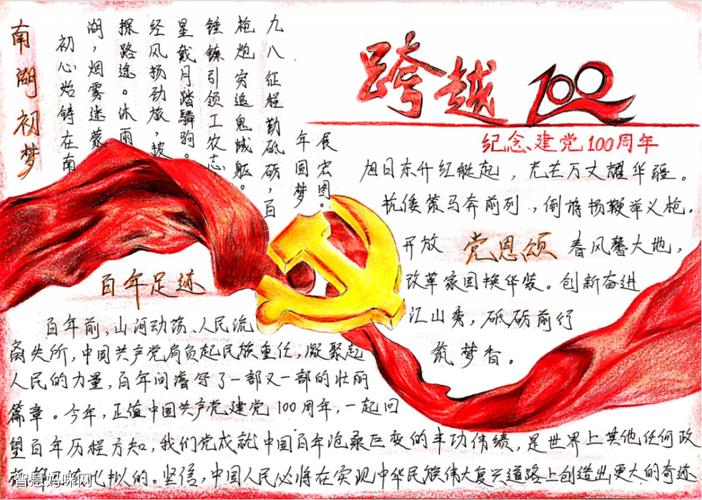 南湖初梦
初心始铸在南
湖,烟雾迷蒙
探路途。沐雨
经风扬劲旅,披
星戴月踏骑驹。
锤镰引领工农志
枪炮突追鬼贼躯。
九八征程勤砥砺,百
年圆梦
展宏图。
跨越100
纪念建党100周年
党恩颂
旭日东升红艇起,光芒万丈耀华疆。
抗倭策马奔前列,倒蒋扬鞭举义枪。
开放 春风馨大地,
改革家园换华装。创新奋进
江山秀,砥砺前行
筑梦香。
百年足迹
百年前,山河动荡、人民流
离失所,中国共产党肩负起民族重任,凝聚起
人民的力量,百年间谱写了一部又一部的壮丽
篇章。今年,正值中国共产党建党100周年,一起回
望百年历程方知,我们党成就中国百年沧桑巨变的丰功伟绩,是世界上其他任何政
比拟的。坚信,中国人民必将在实现中华民族伟大复兴道路上创造出更大的奇迹
智慧妈咪网